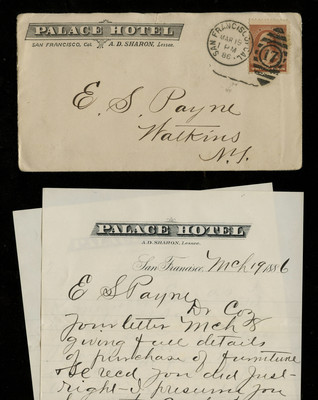 PALACE HOTEL
SAN FRANCISCO, Cal. A. D. SHARON, Lessee.
SAN FRANCISCO, CAL.
MAR 19
PM
86
17
E. S. Payne
Watkins
N.Y.
PALACE HOTEL
A.D. SHARON, Lessee
San Francisco, Mch 19 1886
E S Payne
Dr Coz
Your letter Mch 8
giving full details
of purchase of furniture
&c recd you did Just
right - I presume you